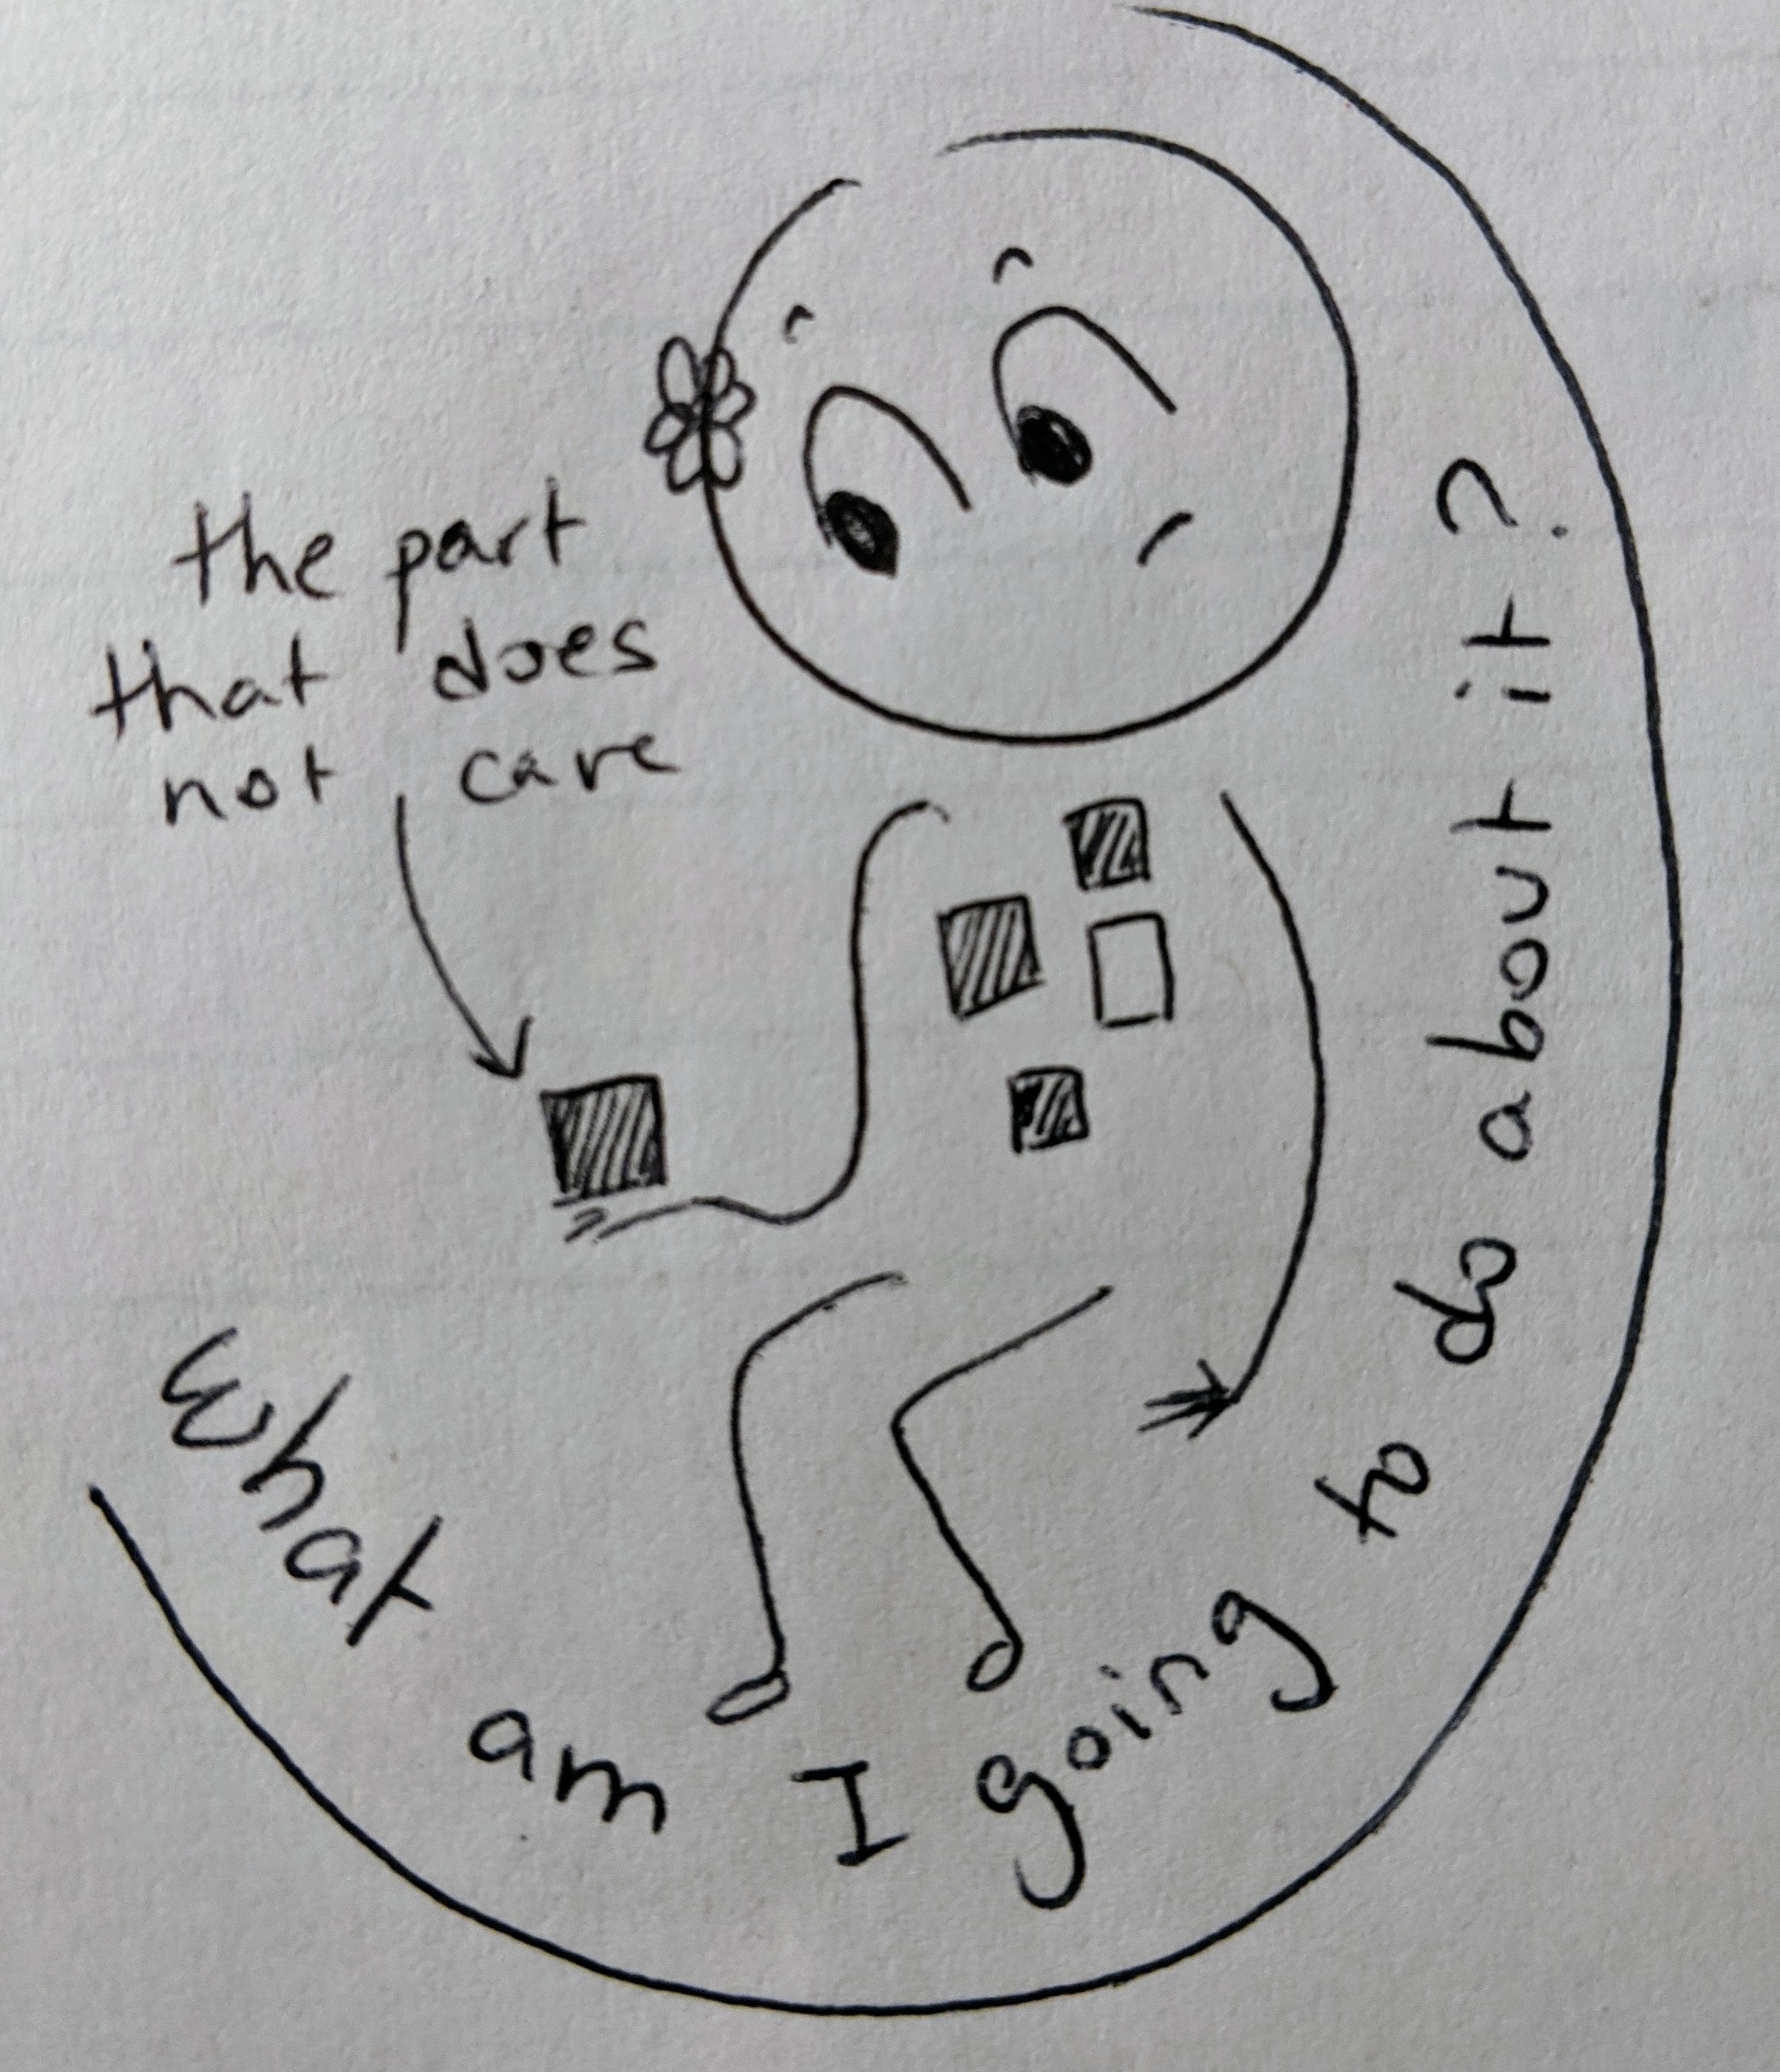 the part
that does
not care
What am I going to do about it?